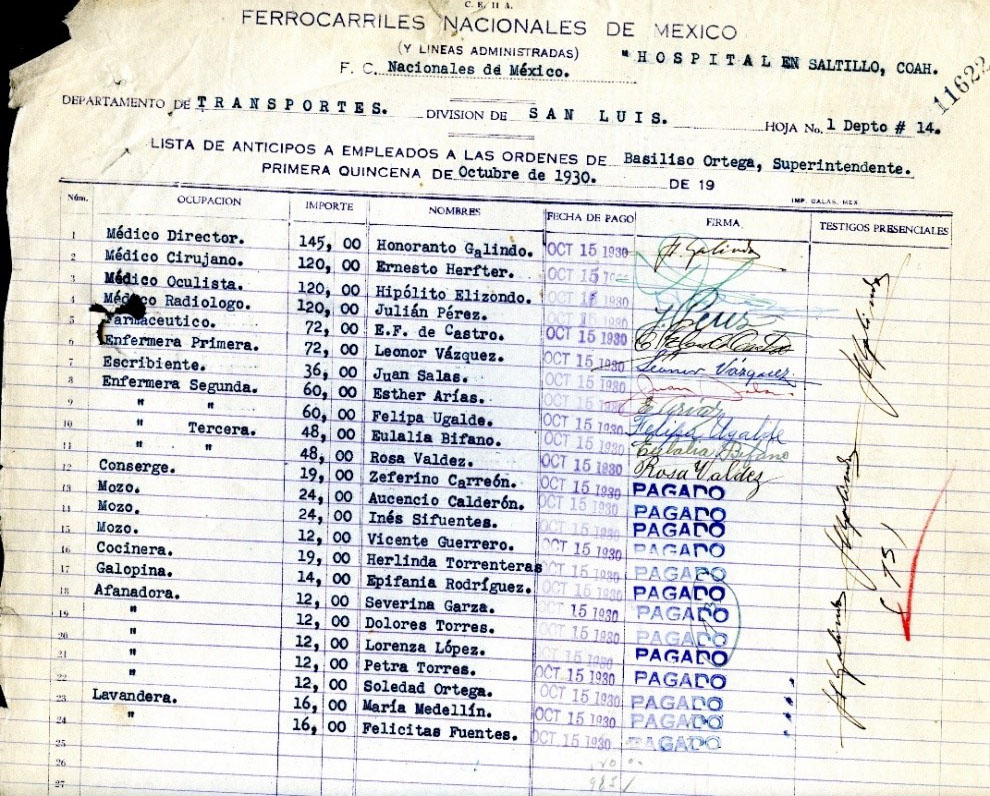 C. E. 11 A.
FERROCARRILES NACIONALES DE MEXICO
(Y LINEAS ADMINISTRADAS)
F. C. Nacionales de México.
"HOSPITAL EN SALTILLO, COAH.
11622
DEPARTAMENTO DE TRANSPORTES. DIVISION DE SAN LUIS. HOJA No. 1 Depto # 14.
LISTA DE ANTICIPOS A EMPLEADOS A LAS ORDENES DE Basiliso Ortega, Superintendente.
PRIMERA QUINCENA DE Octubre de 1930. DE 19
IMP. GALAS, MEX
Núm. OCUPACION IMPORTE NOMBRES FECHA DE PAGO FIRMA TESTIGOS PRESENCIALES
1 Médico Director. 145, 00 Honoranto Galindo. OCT 15 1930 H. Galindo
2 Médico Cirujano. 120, 00 Ernesto Herfter. OCT 15
3 Médico Oculista. 120, 00 Hipólito Elizondo. 1930
4 Médico Radiologo. 120, 00 Julián Pérez.
5 Farmaceutico. 72, 00 E.F. de Castro. OCT 15 1930
6 Enfermera Primera. 72, 00 Leonor Vázquez. OCT 15 1930 Leonor Vázquez
7 Escribiente. 36, 00 Juan Salas. OCT 15 1930 Juan Salas
8 Enfermera Segunda. 60, 00 Esther Arías. E Arias
9 " " 60, 00 Felipa Ugalde. OCT 15 1930 Felipa Ugalde
10 " Tercera. 48, 00 Eulalia Bifano. OCT 15 1930 Eulalia Bifano
11 " " 48, 00 Rosa Valdez. OCT 15 1930 Rosa Valdez
12 Conserge. 19, 00 Zeferino Carreón. OCT 15 1930 PAGADO
13 Mozo. 24, 00 Aucencio Calderón. OCT 15 1930 PAGADO
14 Mozo. 24, 00 Inés Sifuentes. OCT 15 1930 PAGADO
15 Mozo. 12, 00 Vicente Guerrero. OCT 15 1930 PAGADO
16 Cocinera. 19, 00 Herlinda Torrenteras OCT 15 1930 PAGADO
17 Galopina. 14, 00 Epifania Rodríguez. OCT 15 1930 PAGADO
18 Afanadora. 12, 00 Severina Garza. OCT 15 1930 PAGADO
19 " 12, 00 Dolores Torres. OCT 15 1930 PAGADO
20 " 12, 00 Lorenza López. OCT 15 1930 PAGADO
21 " 12, 00 Petra Torres. OCT 15 1930 PAGADO
22 " 12, 00 Soledad Ortega. OCT 15 1930 PAGADO
23 Lavandera. 16, 00 María Medellín. OCT 15 1930 PAGADO
24 " 16, 00 Felicitas Fuentes. OCT 15 1930 PAGADO
25
26
27
H Galindo
H Galindo
H Galindo